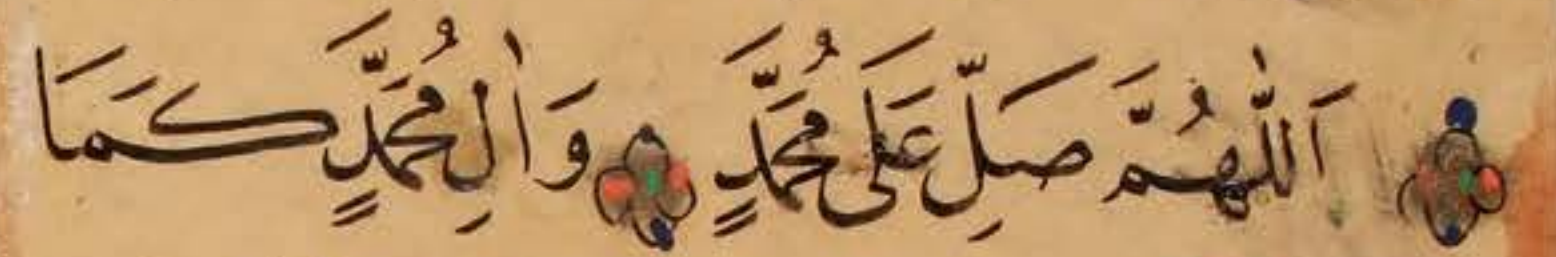 اَللّٰهُمَّ صَلِّ عَلَى مُحَمَّدٍ وَاٰلِ مُحَمَّدٍ كَمَا